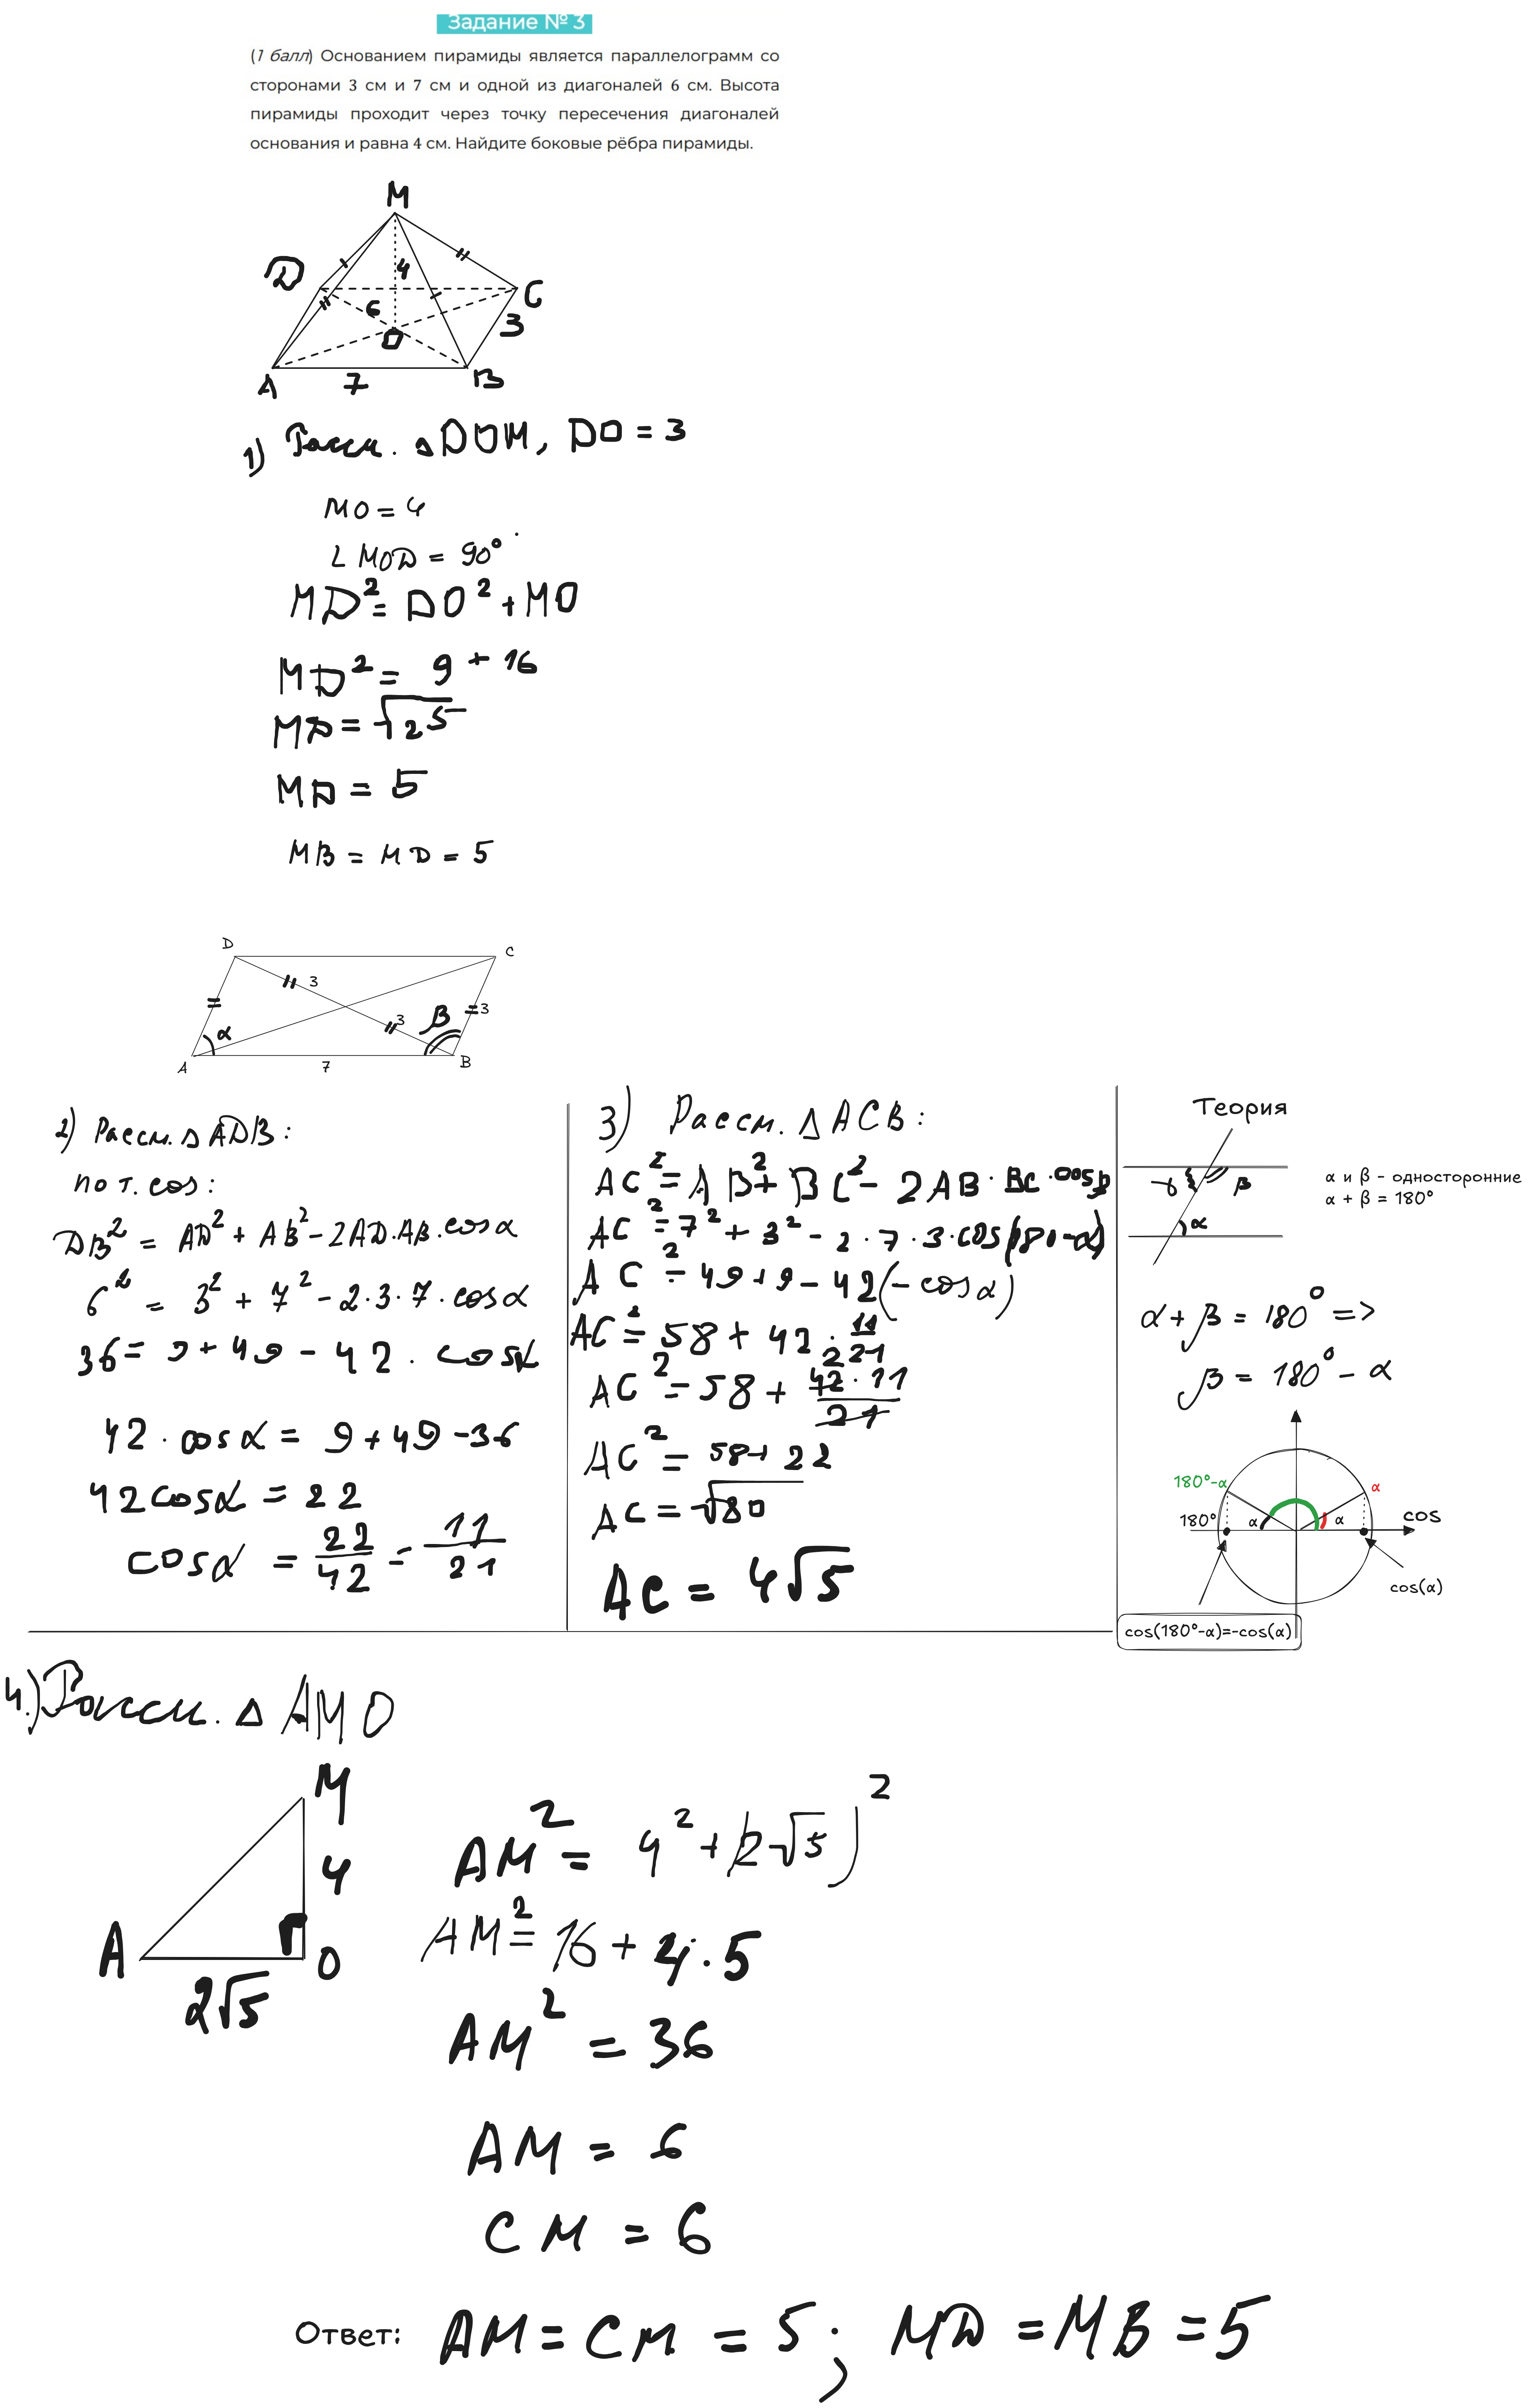 Задание № 3
(1 балл) Основанием пирамиды является параллелограмм со
сторонами 3 см и 7 см и одной из диагоналей 6 см. Высота
пирамиды проходит через точку пересечения диагоналей
основания и равна 4 см. Найдите боковые рёбра пирамиды.
M
D
4
6
C
O
3
A
7
B
1) Рассм. △DOM, DO = 3
MO = 4
∠MOD = 90°
MD² = DO² + MO
MD² = 9 + 16
MD = √25
MD = 5
MB = MD = 5
D
C
3
3
β
3
α
A
7
B
2) Рассм. △ADB:
по т. cos:
DB² = AD² + AB² - 2AD·AB·cosα
6² = 3² + 7² - 2·3·7·cosα
36 = 9 + 49 - 42 · cosα
42 · cosα = 9 + 49 - 36
42cosα = 22
cosα = 22/42 = 11/21
3) Рассм. △ACB:
AC² = AB² + BC² - 2AB · BC · cosβ
AC² = 7² + 3² - 2 · 7 · 3 · cos(180-α)
AC² = 49 + 9 - 42(-cosα)
AC² = 58 + 42 · 11/21
AC² = 58 + 42·11/21
2
AC² = 58 + 22
AC = √80
AC = 4√5
Теория
γ
β
α
α и β - односторонние
α + β = 180°
α + β = 180° =>
β = 180° - α
180°-α
α
180°
α
α
cos
cos(α)
cos(180°-α)=-cos(α)
4.) Рассм. △ AMO
M
4
A
O
2√5
AM² = 4² + (2√5)²
AM² = 16 + 4·5
AM² = 36
AM = 6
CM = 6
Ответ: AM = CM = 5; MD = MB = 5